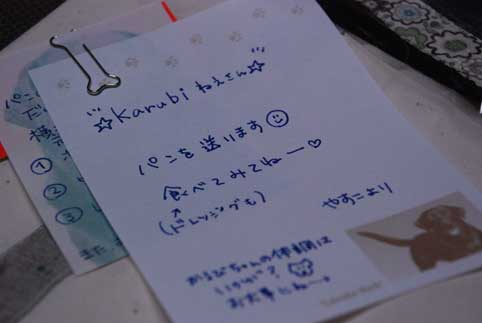 ☆Karubiねえさん☆
パンを送ります☺
食べてみてねー♡
(ドレッシングも)
やすこより
かるびちゃんの体調は
いかが?
お大事にねー
パン
①
②
③
また